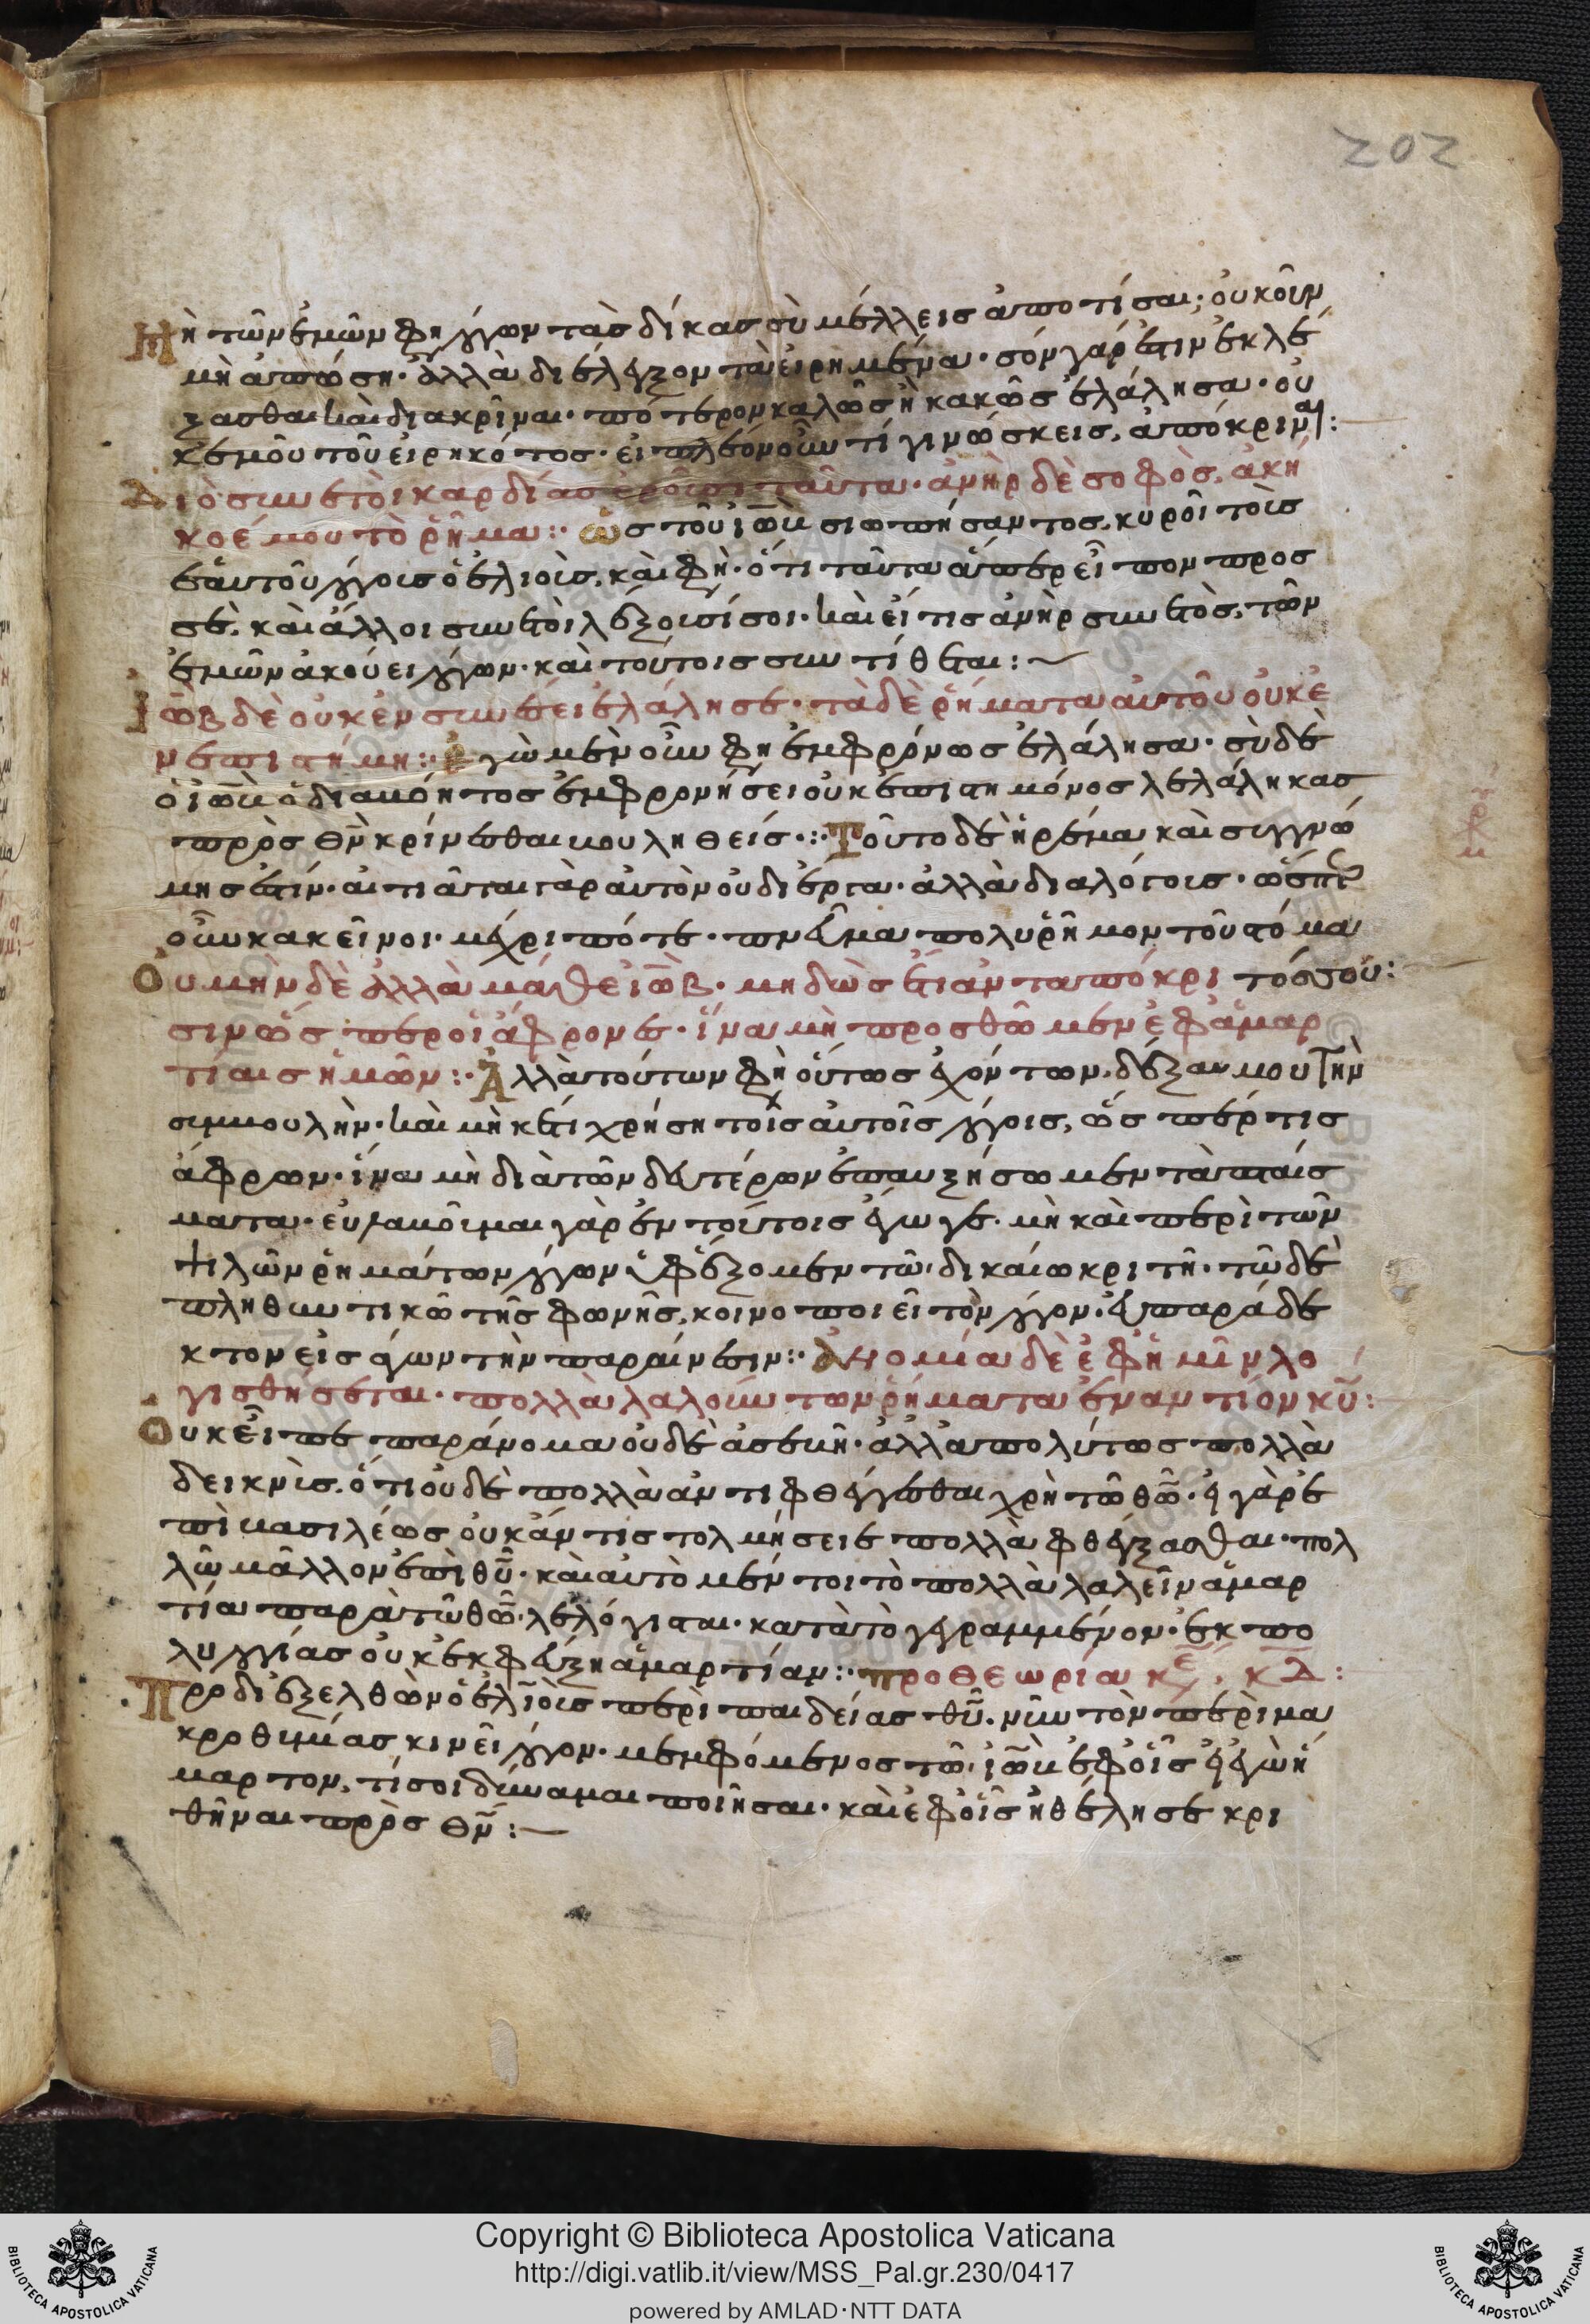 202
Μὴ τῶν ἐμῶν φὴ λόγων τὰσ δίκασ σὺ μέλλεισ ἀποτίσαι; οὐκοῦν
μὴ ἀπώση· ἀλλὰ διέλεγξον τὰ εἰρημένα· σόν γάρ ἐστιν ἐκλέ
ξασθαι καὶ διακρῖναι· πότερον καλῶσ ἢ κακῶσ ἐλάλησα· οὐ
κ ἐμοῦ τοῦ εἰρηκότοσ· εἰ πλέον οὖν τί γινώσκεισ, ἀπόκριναι:
Διὸ συνετοὶ καρδίασ ἐροῦσι ταῦτα· ἀνὴρ δὲ σοφὸσ, ἀκή
κοέ μου τὸ ρῆμα:· ὡσ τοῦ ἰὼβ σιωπήσαντοσ, κυροῖ τοὺσ
ἑαυτοῦ λόγουσ ὁ ἐλιοὺσ, καὶ φὴ· ὅτι ταῦτα ἅπερ εἶπον προσ
σὲ, καὶ ἄλλοι συνετοὶ λέξουσί σοι· καὶ εἴ τισ ἀνὴρ συνετὸσ, τῶν
ἐμῶν ἀκούει λόγων· καὶ τούτοισ συντίθεται:
Ἰὼβ δὲ οὐκ ἐν συνέσει ἐλάλησε· τὰ δὲ ῥήματα αὐτοῦ οὐκ ἐ
ν ἐπιστήμη:· ἐγὼ μὲν οὖν φὴ ἐμφρόνωσ ἐλάλησα· σὺ δὲ
ὁ ἰὼβ ὁ διαβόητοσ ἐμφρονήσει οὐκ ἐπιστημόνοσ λελάληκασ
πρὸσ θν κρίνεσθαι βουληθείσ·:· Τοῦτο δὲ ἠρέμα καὶ συγγνώ
μησ ἐστίν· αἰτιᾶται γὰρ αὐτὸν οὐ δι' ἔργα· ἀλλὰ διὰ λόγουσ· ὥσπερ
οὖν κἀκεῖνοι· μέχρι πότε· πνεῦμα πολυρῆμον τοῦ στόμα
Οὐ μὴν δὲ ἀλλὰ μάθε ἰώβ· μὴ δῶσ ἔτι ἀνταπόκρι τόσ σου:
σιν ὥσπερ οἱ ἄφρονεσ· ἵνα μὴ προσθῶμεν ἐφ ἁμαρ
τίαισ ἡμῶν:· Ἀλλὰ τούτων φὴ οὕτωσ ἐχόντων, δέξαι μου τὴν
συμβουλὴν· καὶ μὴκέτι χρήση τοῖσ αὐτοῖσ λόγοισ, ὥσπέρ τισ
ἄφρων· ἵνα μὴ διὰ τῶν δευτέρων ἐπαυξήσωμεν τὰ πταίσ
ματα· εὐλαβοῦμαι γὰρ ἐν τούτοισ ἔγωγε· μὴ καὶ περὶ τῶν
ψιλῶν ῥημάτων λόγων ὑφέξομεν τῶ δικαίω κριτῆ· τῶ δὲ
πληθυντικῶ τῆσ φωνῆσ, κοινοποιεῖ τὸν λόγον· εὐπαράδε
κτον εἰσάγων τὴν παραίνεσιν:· ἀνομία δὲ ἐφ ἡμῖν λο
γισθήσεται· πολλὰ λαλούντων ῥήματα ἐναντίον κυ:
Οὐκ εἶπε παράνομα οὐδὲ ἀσεβῆ· ἀλλ' ἀπολύτωσ πολλὰ
δεικνὺσ, ὅτι οὐδὲ πολλὰ ἀντιφθέγγεσθαι χρὴ τῶ θω· εἰ γὰρ ἐ
πὶ βασιλέωσ οὐκ ἄν τισ τολμήσειε πολλὰ φθέγξασθαι· πολ
λῶ μᾶλλον ἐπὶ θυ· καὶ αὐτὸ μέν τοι τὸ πολλὰ λαλεῖν ἁμαρ
τία παρὰ τῶ θω λελόγισται· κατὰ τὸ γεγραμμένον· ἐκ πο
λυλογίασ οὐκ ἐκφεύξη ἁμαρτίαν:· προθεωρία κε, κδ:
Προδιεξελθὼν ὁ ἐλιοὺσ περὶ παιδείασ θυ· νῦν τὸν περὶ μα
κροθυμίασ κινεῖ λόγον· μεμφόμενοσ τῶ ἰὼβ ἐφ' οἷσ εἰ ἐγὼ ἥ
μαρτον, τί σοι δύναμαι ποιῆσαι· καὶ ἐφ' οἷσ ἠθέλησε κρι
θῆναι πρὸσ θν:
Copyright © Biblioteca Apostolica Vaticana
http://digi.vatlib.it/view/MSS_Pal.gr.230/0417
powered by AMLAD·NTT DATA
BIBLIOTECA APOSTOLICA VATICANA
BIBLIOTECA APOSTOLICA VATICANA